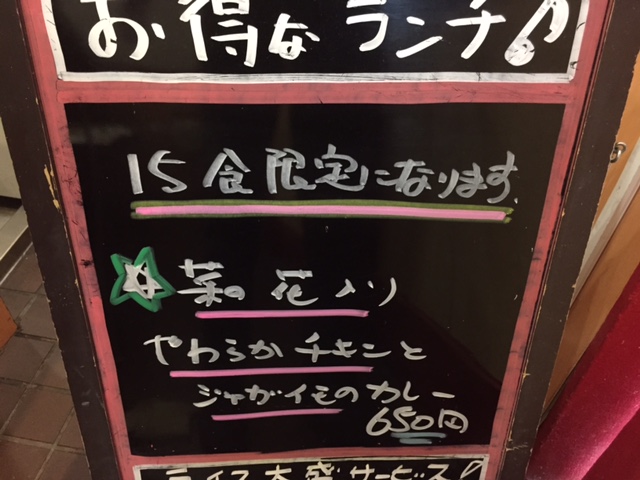 お得なランチ♪
15食限定になります
☆菜の花入り
やわらかチキンと
ジャガイモのカレー
650円
ライス大盛サービス♪